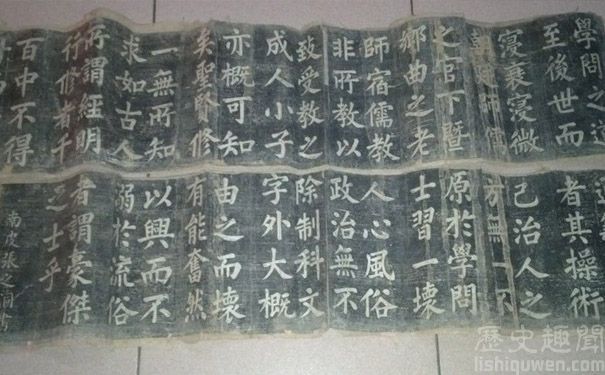 學問之
至後世而
寖衰寖微
師儒
之官下暨
鄉曲之老
師宿儒教
非所教以
致受教之
成人小子
亦概可知
矣聖賢修
一無所知
求如古人
所謂經明
行修者千
百中不得
者其操術
己治人之
方無一不
原於學問
士習一壞
人心風俗
政治無不
除制科文
字外大概
由之而壞
有能奮然
以興而不
溺於流俗
者謂豪傑
之士乎
南皮張之洞書
歷史趣聞
lishiquwen.com